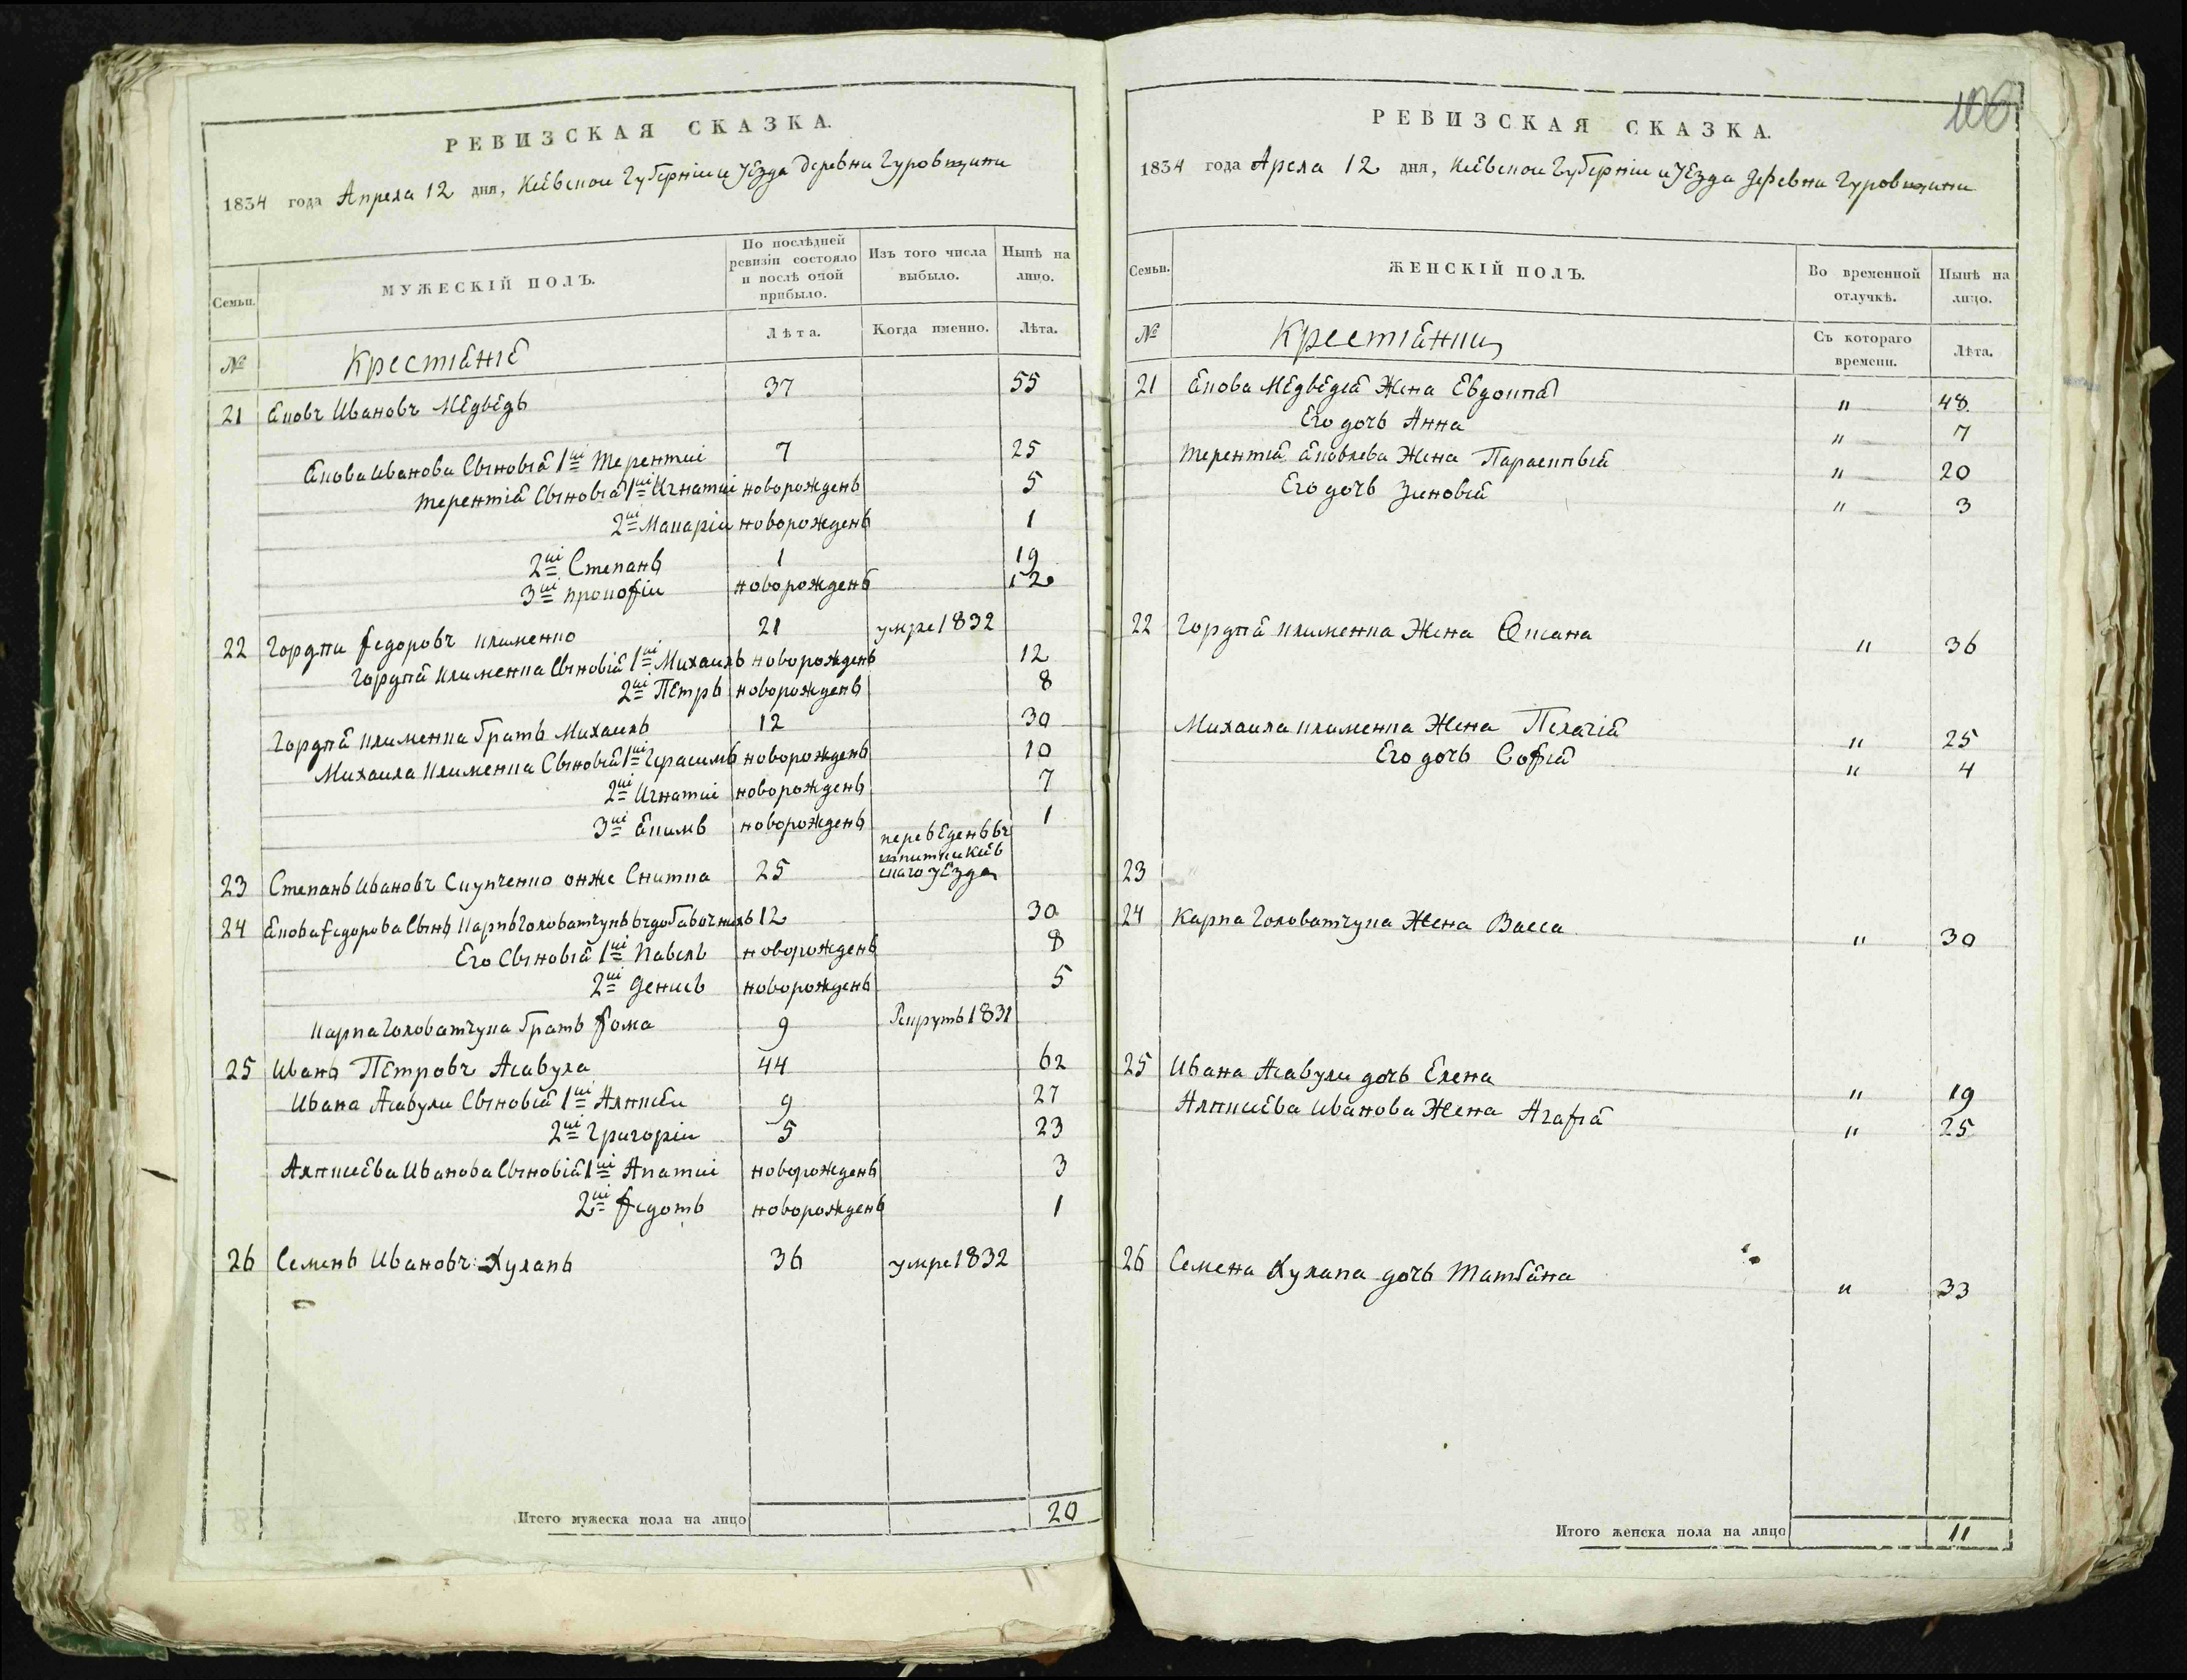 РЕВИЗСКАЯ СКАЗКА.
1834 года Апреля 12 дня, Киевскои Губерніи и уезда деревни Гуровщини
Семьи.
МУЖЕСКІЙ ПОЛЪ.
По послѣдней ревизіи состояло и послѣ оной прибыло.
Изъ того числа выбыло.
Нынѣ на лицо.
№
Крестяне
Лѣта.
Когда именно.
Лѣта.
21 Яковъ Ивановъ Медведь 37 55
Якова Иванова Сыновя 1й Терентиі 7 25
Терентія Сыновя 1й Игнатиі новорождень 5
2й Макаріи новорождень 1
2й Степань 1 19
3й прокофіи новорождень 12
22 Гордѣи федоровъ клименко 21 умре 1832
Гордѣя клименка Сыновія 1й Михаиль новорождень 12
2й Петрь новорождень 8
Гордѣя клименка брать Михаиль 12 30
Михаила клименка Сыновія 1й Герасимь новорождень 10
2й Игнатиі новорождень 7
3й Якимь новорождень 1
23 Степань Ивановъ Скупченко онже Снитка 25 переведень въ шпитки Киевскаго уезда
24 Якова федорова Сынь Карпь Головатчукь въ добавочнихь 12 30
Его Сыновія 1й Павель новорождень 8
2й Денись новорождень 5
Карпа Головатчука брать фома 9 Рекруть 1831
25 Ивань Петровъ Асавула 44 62
Ивана Асавули Сыновія 1й Алексеи 9 27
2й Григоріи 5 23
Алексеева Иванова Сыновія 1й Ипатиі новорождень 3
2й федоть новорождень 1
26 Семень Ивановъ Кулапь 36 умре 1832
Итого мужеска пола на лицо 20
106
РЕВИЗСКАЯ СКАЗКА.
1834 года Апреля 12 дня, Киевскои Губерніи и уезда деревни Гуровщини
Семьи.
ЖЕНСКІЙ ПОЛЪ.
Во временной отлучкѣ.
Нынѣ на лицо.
№
Крестянки
Съ котораго времени.
Лѣта.
21 Якова Медведя Жена Евдокия " 48
Его дочь Анна " 7
Терентия Яковлева Жена Параскивия " 20
Его дочь Зиновія " 3
22 Гордѣя клименка Жена Оксана " 36
Михаила клименка Жена Пелагія " 25
Его дочь Софія " 4
23
24 Карпа Головатчука Жена Васса " 30
25 Ивана Асавули дочь Елена " 19
Алексеева Иванова Жена Агафія " 25
26 Семена Кулапа дочь Татьяна " 33
Итого женска пола на лицо 11